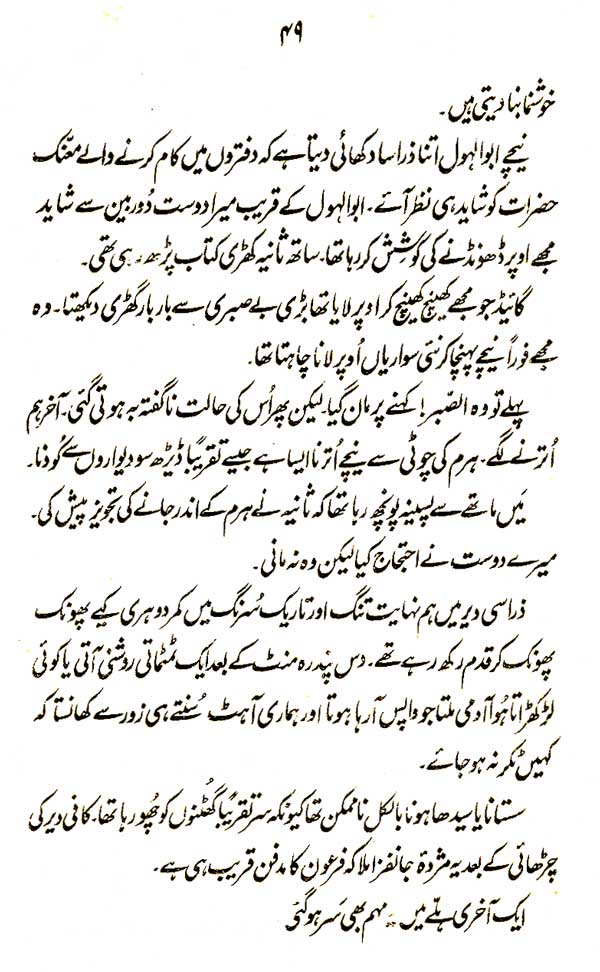 ۴۹
خوشنما بنا دیتی ہیں۔
نیچے ابوالہول اتنا ذرا سا دکھائی دیتا ہے کہ دفتروں میں کام کرنے والے معنّک
حضرات کو شاید ہی نظر آئے۔ ابوالہول کے قریب میرا دوست دُوربین سے شاید
مجھے اوپر ڈھونڈنے کی کوشش کر رہا تھا۔ ساتھ ثانیہ کھڑی کتاب پڑھ رہی تھی۔
گائیڈ جو مجھے کھینچ کھینچ کر اوپر لایا تھا بڑی بے صبری سے بار بار گھڑی دیکھتا۔ وہ
مجھے فوراً نیچے پہنچا کر نئی سواریاں اُوپر لانا چاہتا تھا۔
پہلے تو وہ الصّبر! کہنے پر مان گیا۔ لیکن پھر اُس کی حالت ناگفتہ بہ ہوتی گئی۔ آخر ہم
اُترنے لگے۔ ہرم کی چوٹی سے نیچے اُترنا ایسا ہے جیسے تقریباً ڈیڑھ سو دیواروں سے کُودنا۔
مَیں ماتھے سے پسینہ پونچھ رہا تھا کہ ثانیہ نے ہرم کے اندر جانے کی تجویز پیش کی۔
میرے دوست نے احتجاج کیا لیکن وہ نہ مانی۔
ذرا سی دیر میں ہم نہایت تنگ اور تاریک سُرنگ میں کمر دوہری کیے پھونک
پھونک کر قدم رکھ رہے تھے۔ دس پندرہ منٹ کے بعد ایک ٹمٹماتی روشنی آتی یا کوئی
لڑکھڑاتا ہُوا آدمی ملتا جو واپس آ رہا ہوتا اور ہماری آہٹ سُنتے ہی زور سے کھانستا کہ
کہیں ٹکر نہ ہو جائے۔
سستانا یا سیدھا ہونا بالکل ناممکن تھا کیونکہ سر تقریباً گھُٹنوں کو چھُو رہا تھا۔ کافی دیر کی
چڑھائی کے بعد یہ مژدۂ جانفزا ملا کہ فرعون کا مدفن قریب ہی ہے۔
ایک آخری ہلّے میں یہ مہم بھی سَر ہو گئی